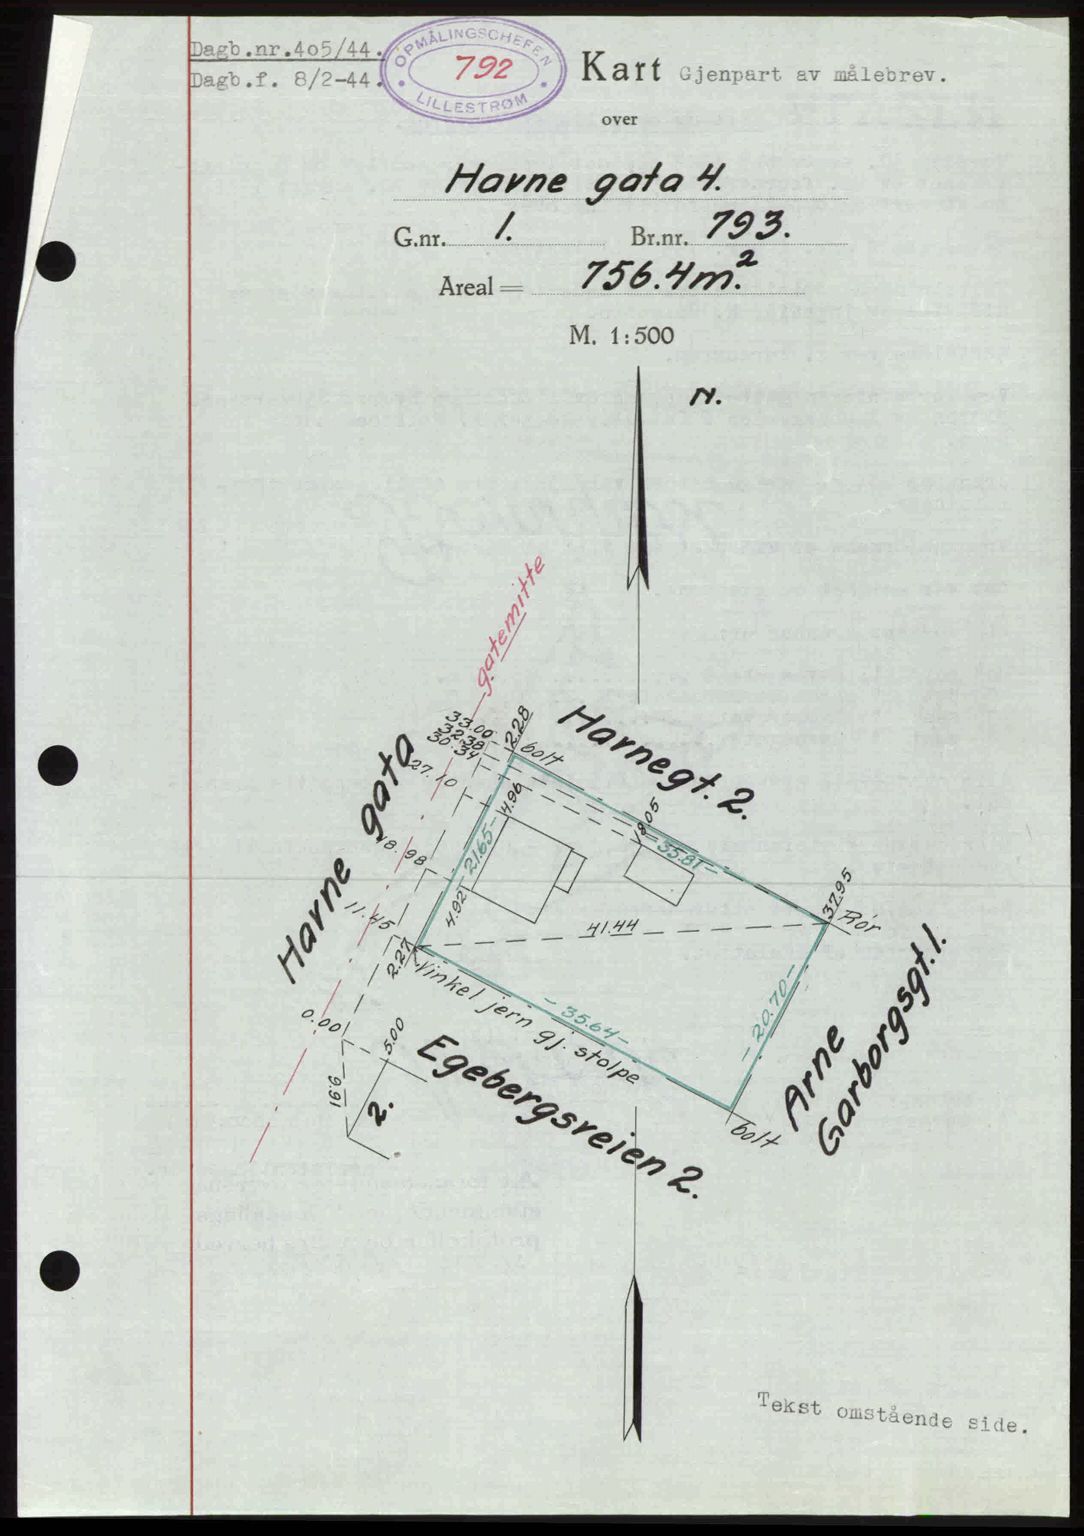 Dagb.nr.4o5/44.
Dagb.f. 8/2-44.
OPMÅLINGSCHEFEN
792
LILLESTRØM
Kart Gjenpart av målebrev.
over
Havne gata 4.
G.nr. 1. Br.nr. 793.
Areal = 756.4m.²
M. 1:500
N.
gatemitte
33.00
32.38
30.34
27.10
18.98
11.45
0.00
2.28
bolt
Havnegt. 2.
Havne gata
4.96
21.65
4.92
2.27
18.05
35.81
37.95
Rör
41.44
Vinkel jern gj. stolpe
35.64
20.70
Arne
Garborgsgt. 1.
5.00
9.91
2.
Egebergsveien 2.
bolt
Tekst omstående side.